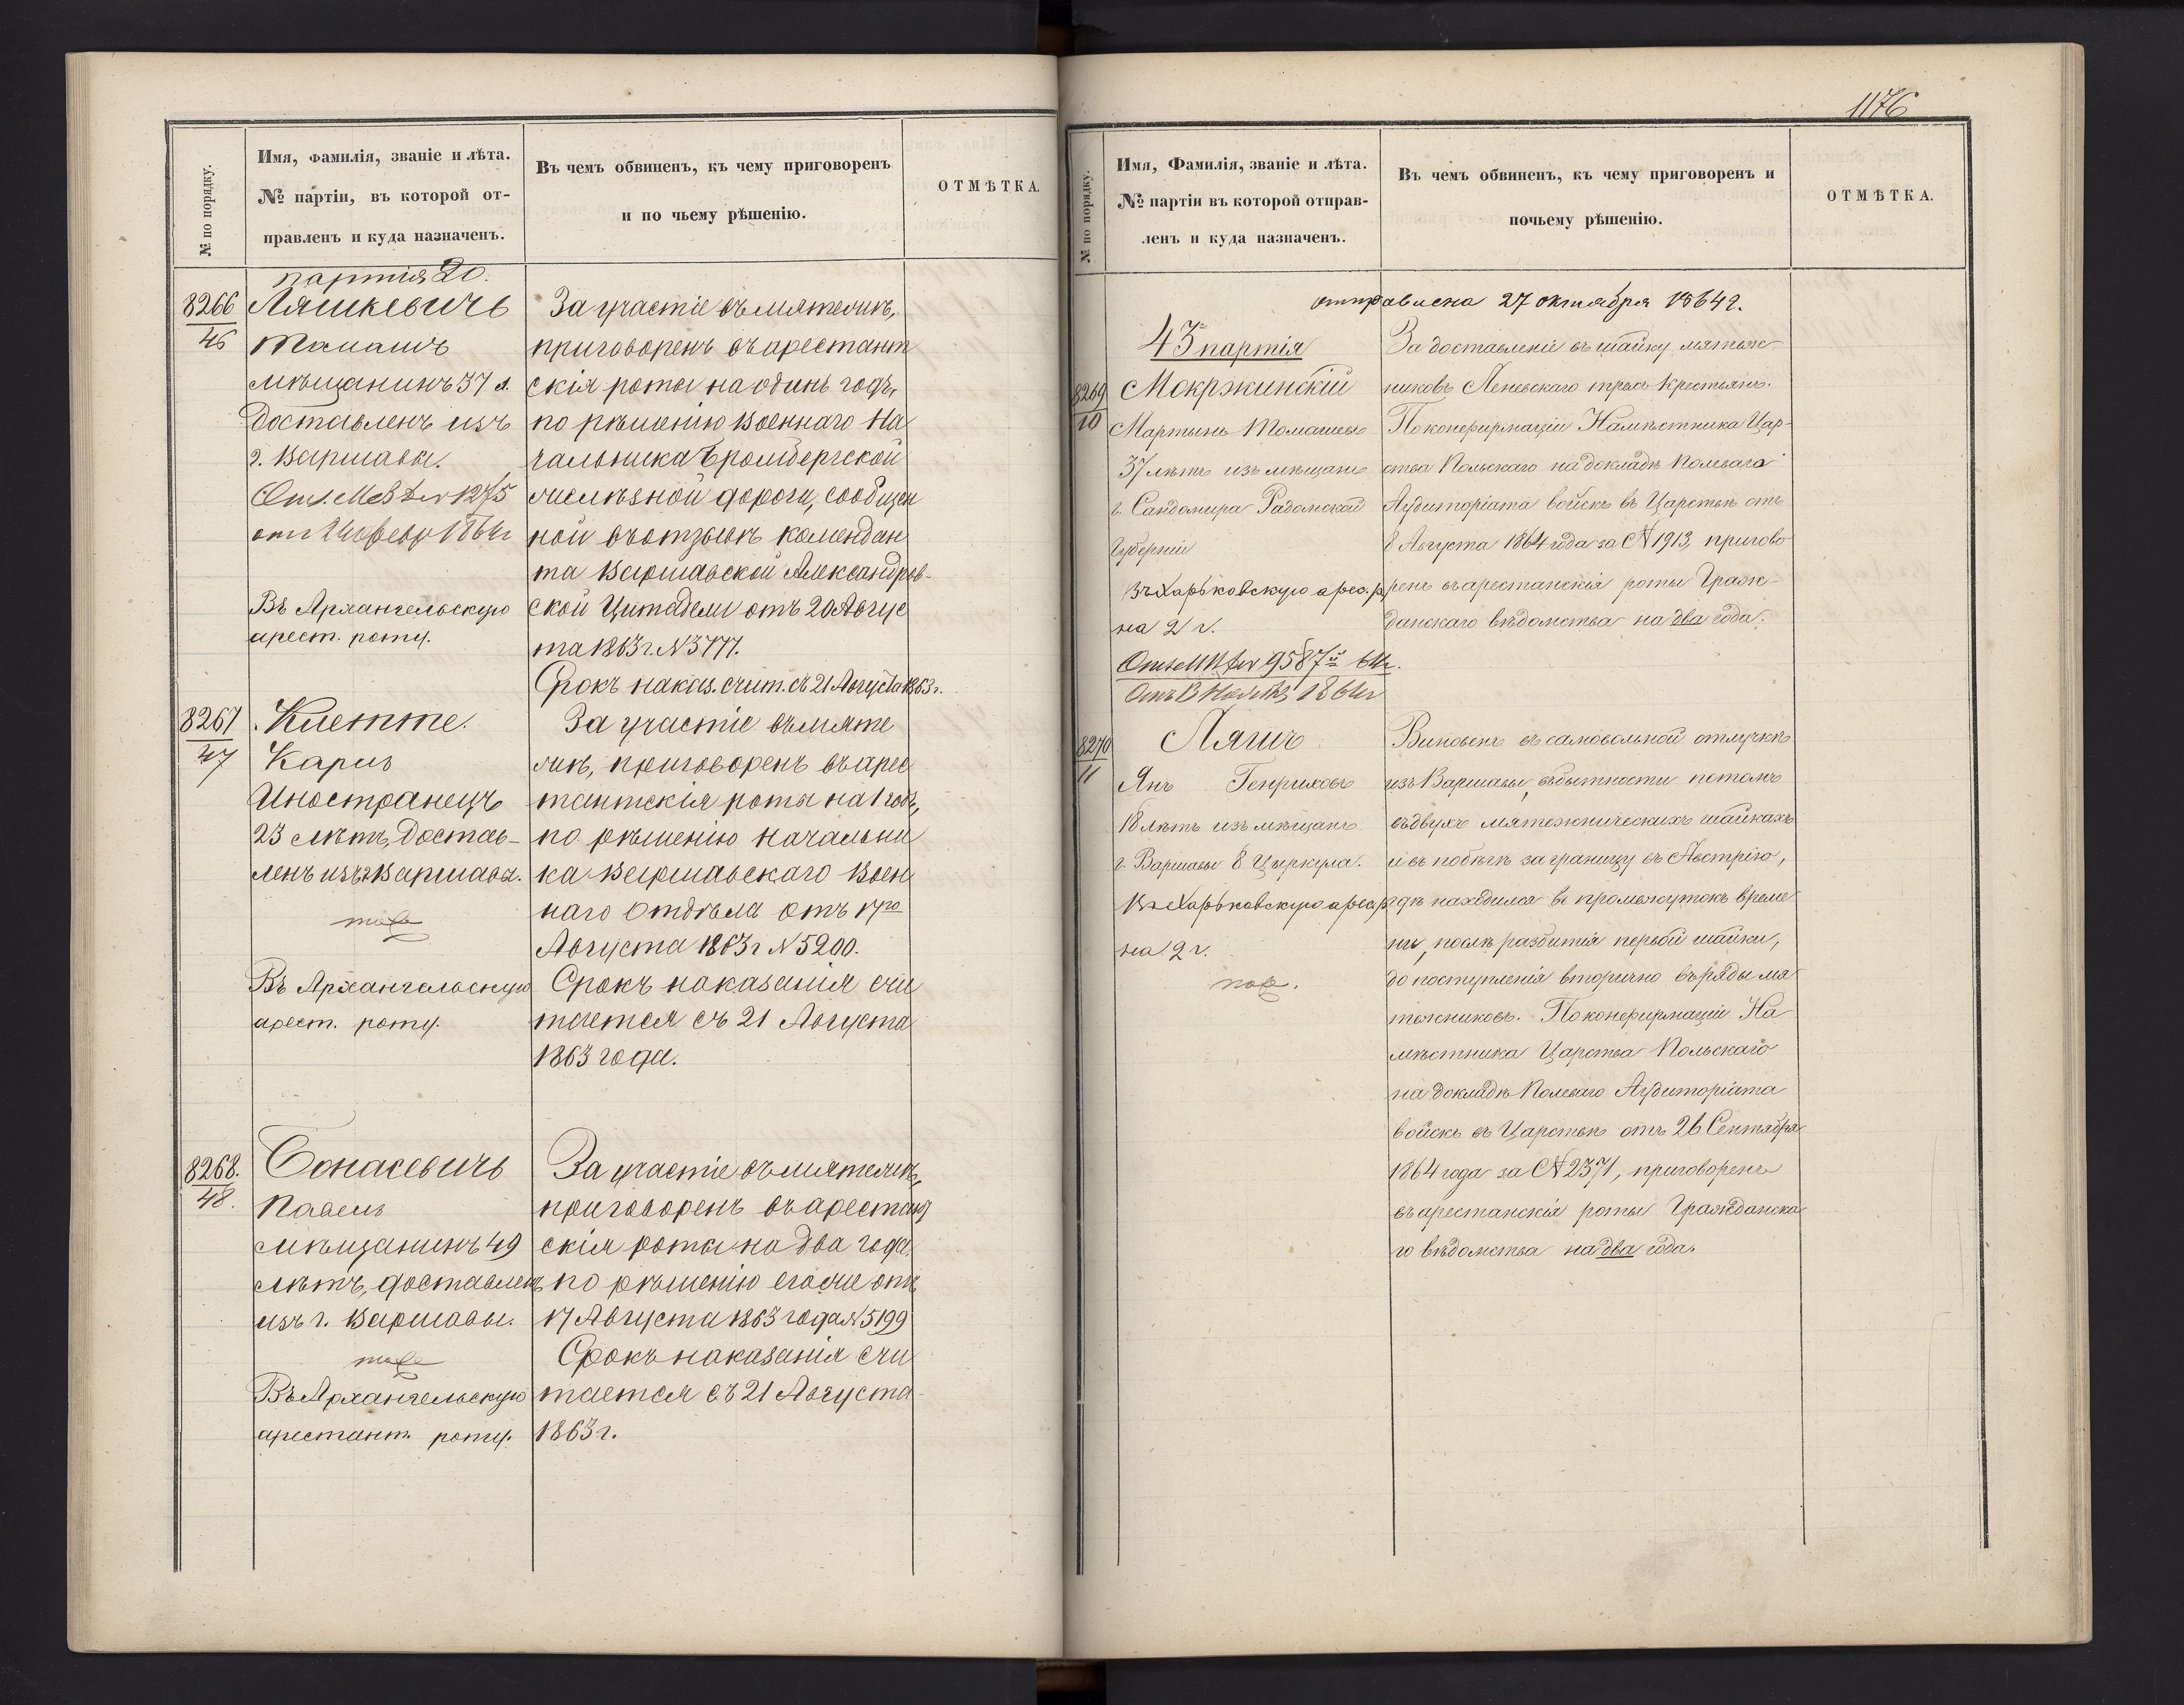 № по порядку.
Имя, фамилія, званіе и лѣта.
№ партіи, въ которой от-
правленъ и куда назначенъ.
Въ чемъ обвиненъ, къ чему приговоренъ
и по чьему рѣшенію.
ОТМѢТКА.
партія 20.
8266
46
Ляшкевичъ
Томашъ
мѣщанинъ 37 л.
доставленъ изъ
г. Варшавы.
1275
1864г
Въ Архангельскую
арест. роту.
За участіе въ мятежѣ,
приговоренъ въ арестант
скія роты на одинъ годъ,
по рѣшенію Военнаго На
чальника Бромбергской
желѣзной дороги, сообщен
ной въ отзывѣ комендан
та Варшавской Александров-
ской Цитадели отъ 20 Авгус
та 1863 г. № 3777.
Срокъ наказ. счит. съ 21 Августа 1863 г.
8267
47
Клетте.
Карлъ
Иностранецъ
23 лѣтъ, достав-
ленъ изъ г. Варшавы.
тоже
Въ Архангельскую
арест. роту.
За участіе въ мяте
жѣ, приговоренъ въ арес
тантскія роты на 1 годъ,
по рѣшенію начальни
ка Варшавскаго Воен
наго Отдѣла отъ 17го
Августа 1863 г № 5200.
Срокъ наказанія счи
тается съ 21 Августа
1863 года.
8268.
48.
Бонасевичъ
Павелъ
мѣщанинъ 49
лѣтъ, доставленъ
изъ г. Варшавы.
тоже
Въ Архангельскую
арестант. роту.
За участіе въ мятежѣ,
приговоренъ въ арестант
скія роты на два года
по рѣшенію его же отъ
17 Августа 1863 года № 5199
Срокъ наказанія счи
тается съ 21 Августа
1863 г.
1176
№ по порядку.
Имя, Фамилія, званіе и лѣта.
№ партіи въ которой отправ-
ленъ и куда назначенъ.
Въ чемъ обвиненъ, къ чему приговоренъ и
почьему рѣшенію.
ОТМѢТКА.
отправлена 27 октября 1864 г.
43я партія
8269
10
Мокржинскій
Мартынъ Томашевъ
37 лѣтъ изъ мѣщанъ
г. Сандомира Радомской
Губерніи
Въ Харьковскую арес. р
на 2 г.
9587 64г.
1864г
За доставленіе въ шайку мятеж-
никовъ Леневскаго трехъ крестьянъ.
По конфирмаціи Намѣстника Цар-
ства Польскаго на докладѣ Полеваго
Аудиторіата войскъ въ Царствѣ отъ
8 Августа 1864 года за № 1913, пригово
ренъ въ арестанскія роты Граж-
данскаго вѣдомства на два года.
8270
11
Ляшъ
Янъ Генриховъ
18 лѣтъ изъ мѣщанъ
г. Варшавы 8 Циркула.
Въ Харьковскую арес. р
на 2 г.
тоже.
Виновенъ въ самовольной отлучкѣ
изъ Варшавы, въ бытности потомъ
въ двухъ мятежническихъ шайкахъ
и въ побѣгѣ за границу въ Австрію,
гдѣ находился въ промежутокъ време
ни, послѣ разбитія первой шайки,
до поступленія вторично въ ряды мя
тежниковъ. По конфирмаціи На
мѣстника Царства Польскаго
на докладѣ Полеваго Аудиторіата
войскъ въ Царствѣ отъ 26 Сентября
1864 года за № 2371, приговоренъ
въ арестанскія роты Гражданска
го вѣдомства на два года.